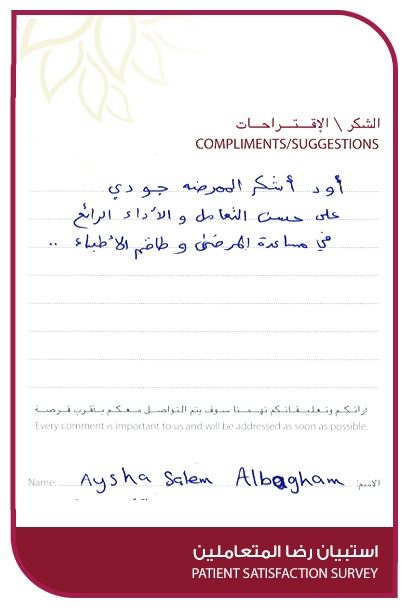 الشكر \ الإقتراحات
COMPLIMENTS/SUGGESTIONS
أود أشكر الممرضه جودي
على حسن التعامل و الأداء الرائع
في مساعدة المرضى و طاقم الأطباء ..
آرائكم وتعليقاتكم تهمنا سوف يتم التواصل معكم بأقرب فرصة
Every comment is important to us and will be addressed as soon as possible.
Name: Aysha Salem Albagham الاسم:
استبيان رضا المتعاملين
PATIENT SATISFACTION SURVEY